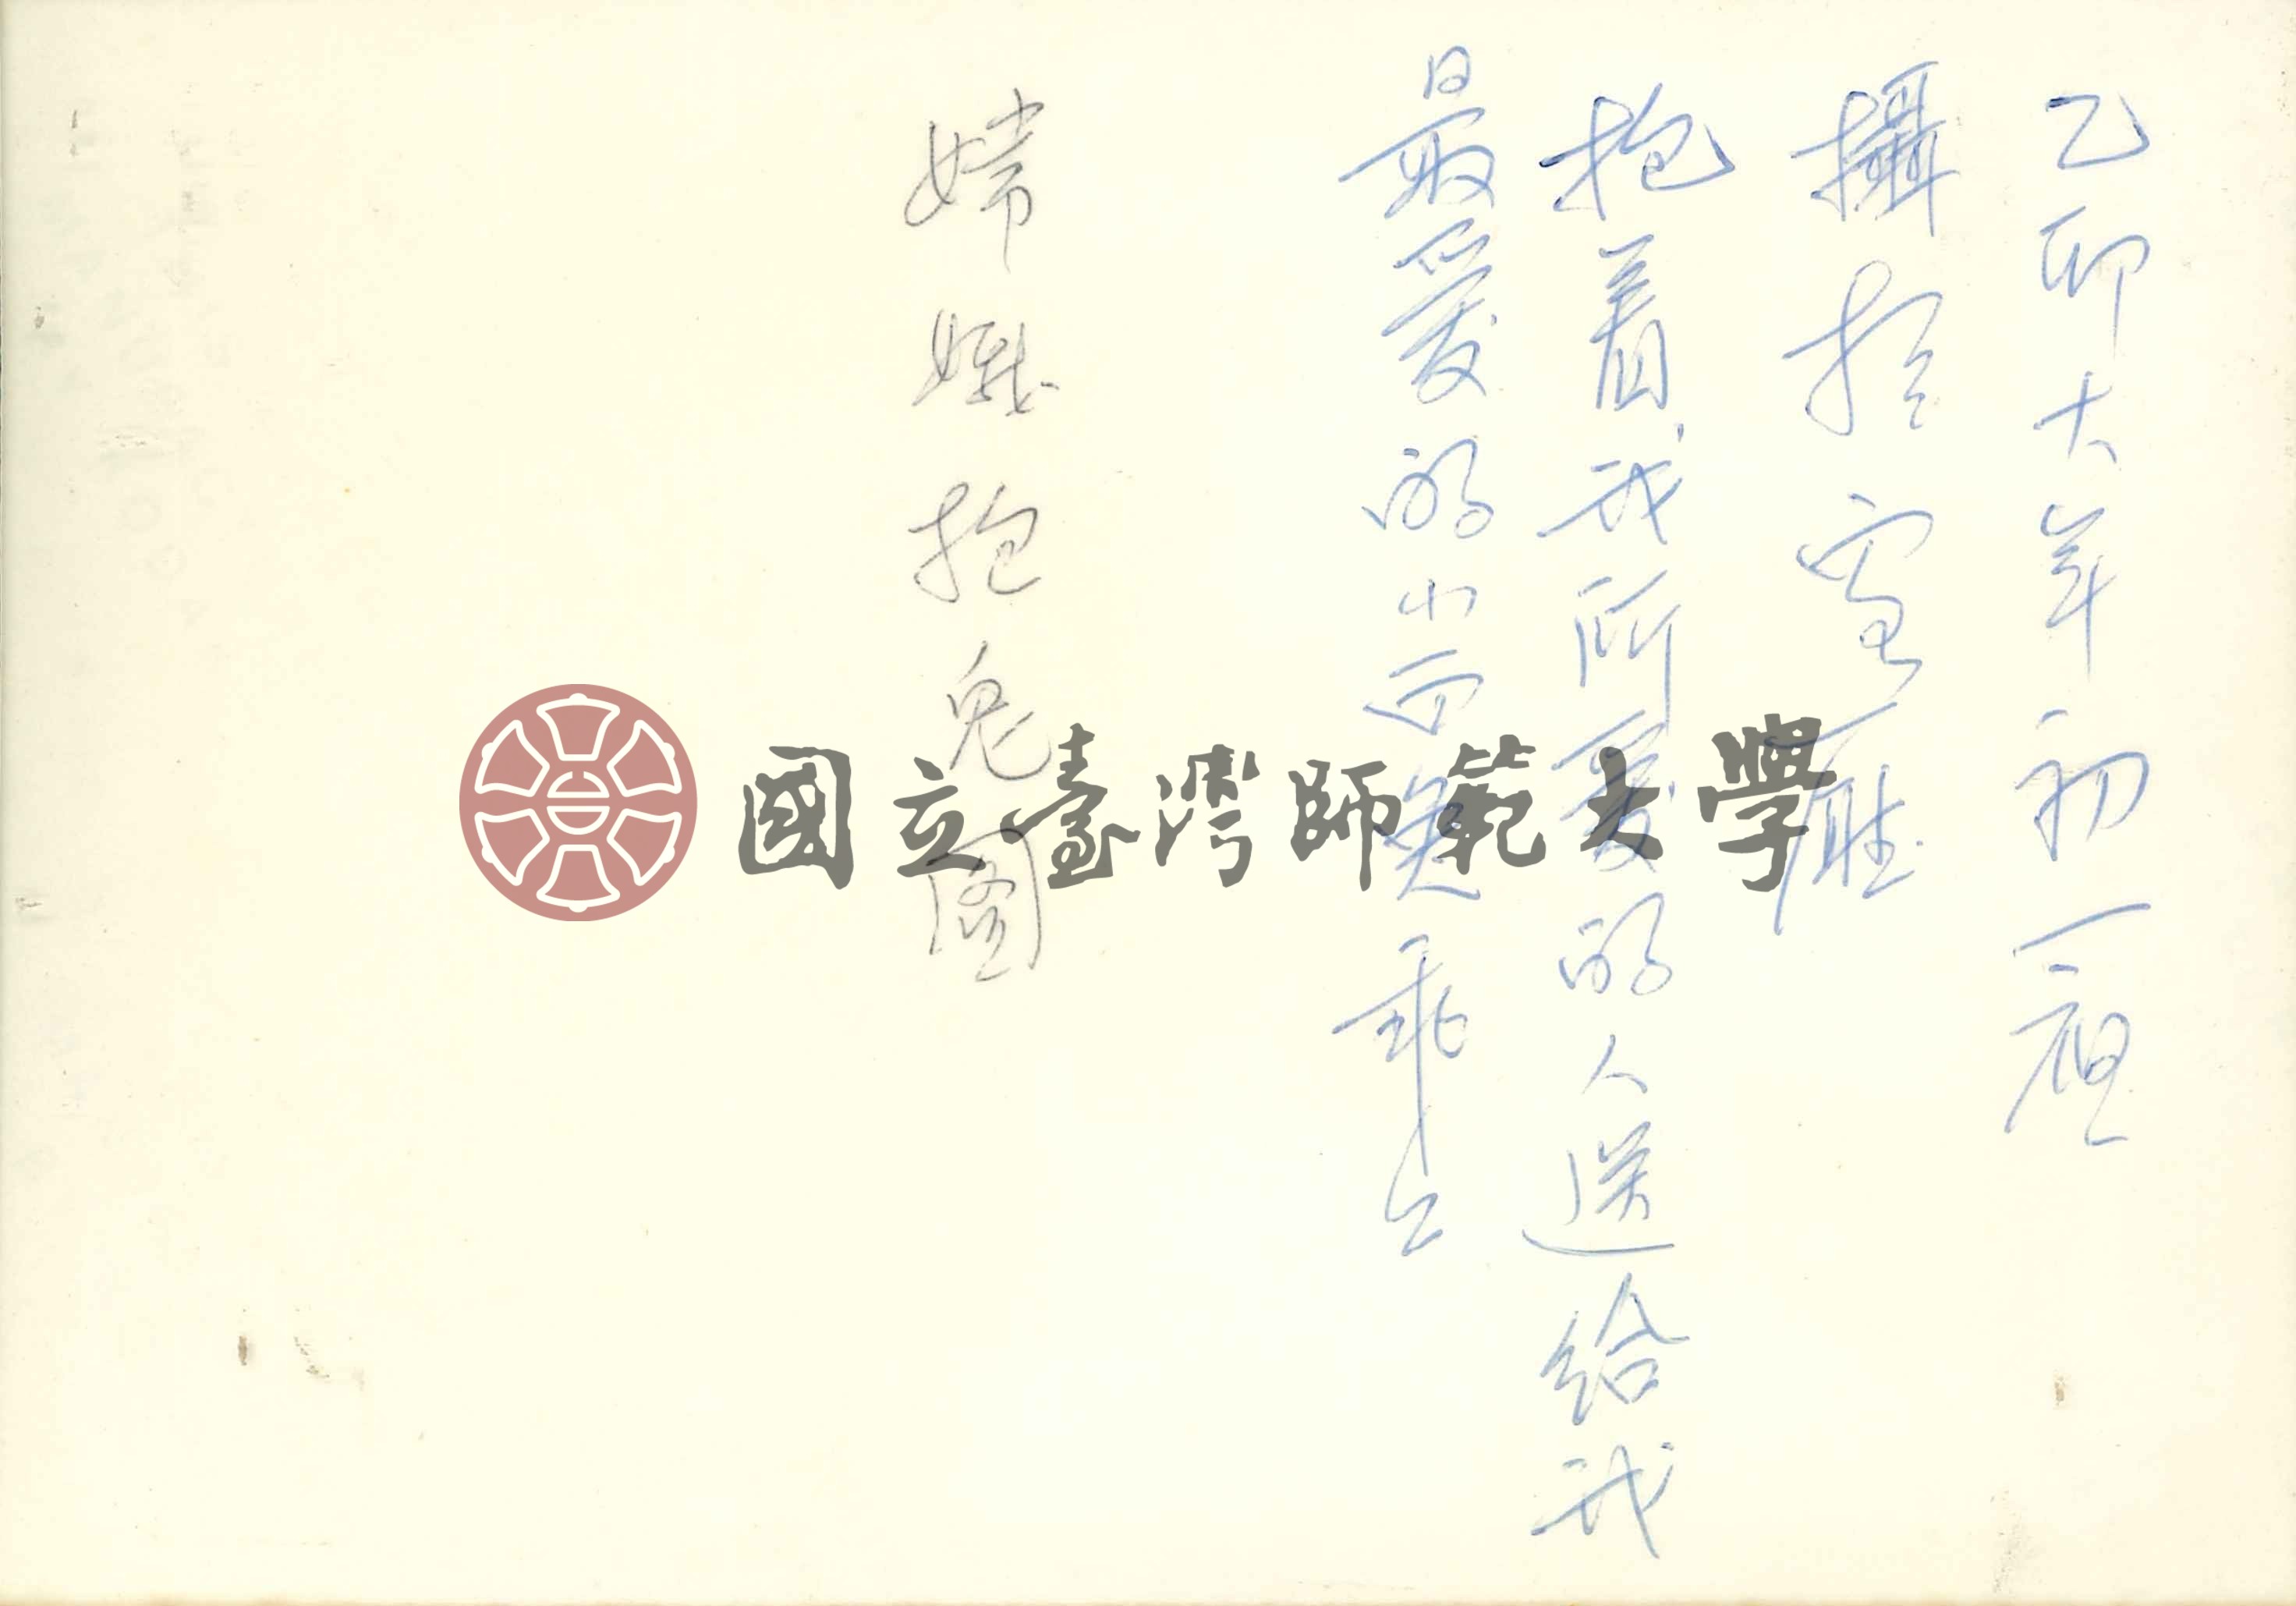 乙卯大年初一
攝於客廳
抱着我所愛的人送給我
最愛的小白兔乖々
嫦娥抱兔圖
國立臺灣師範大學